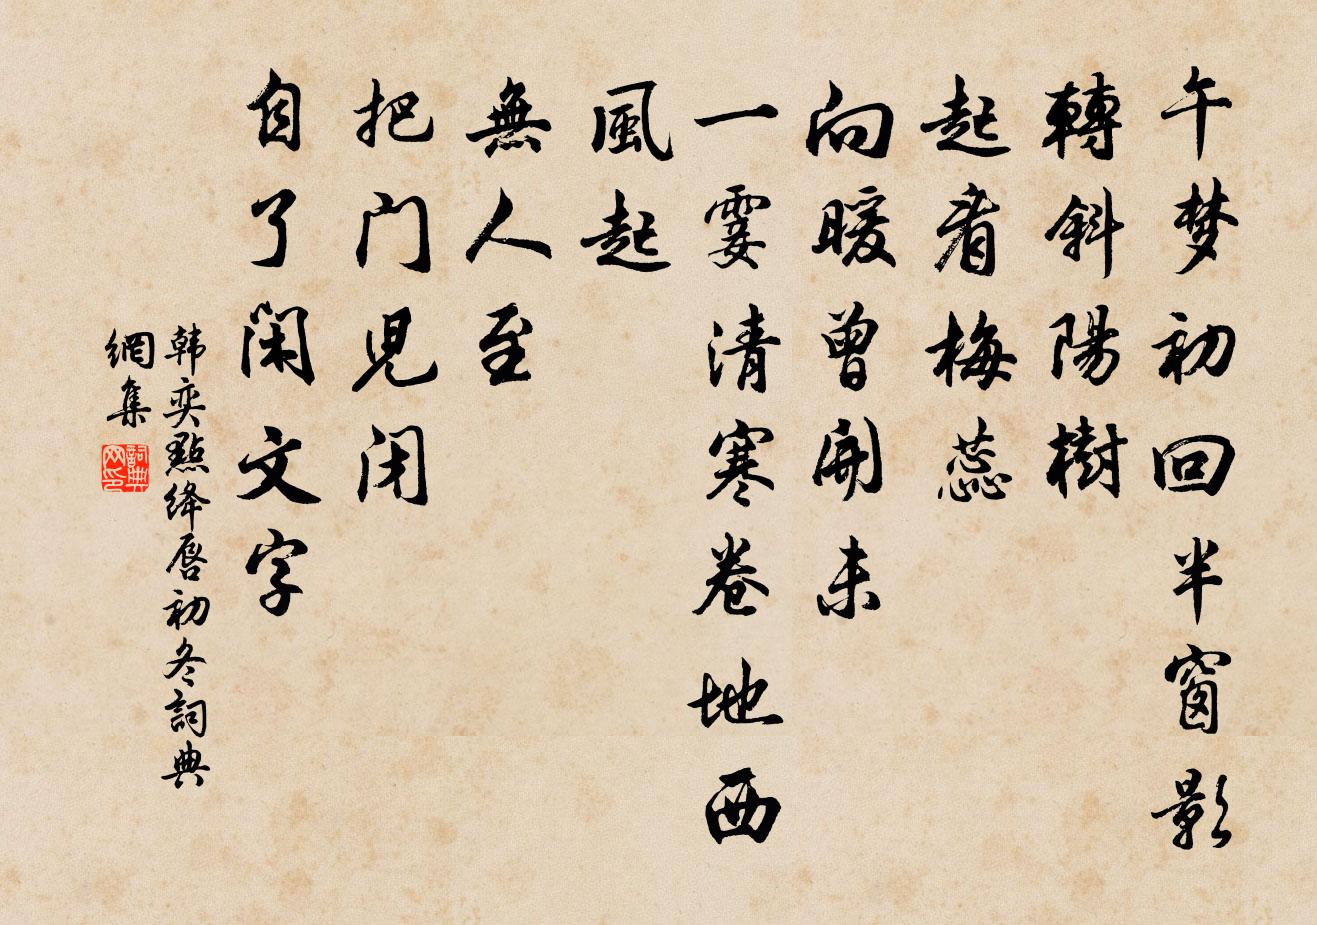 午梦初回半窗影
轉斜陽樹
起看梅蕊
向暖曾開未
一霎清寒卷地西
風起
無人至
把门兒闭
自了閑文字
韩奕點绛唇初冬詞典
網集
詞典網印